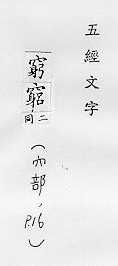 五經文字
窮竆二同(穴部,P.16)